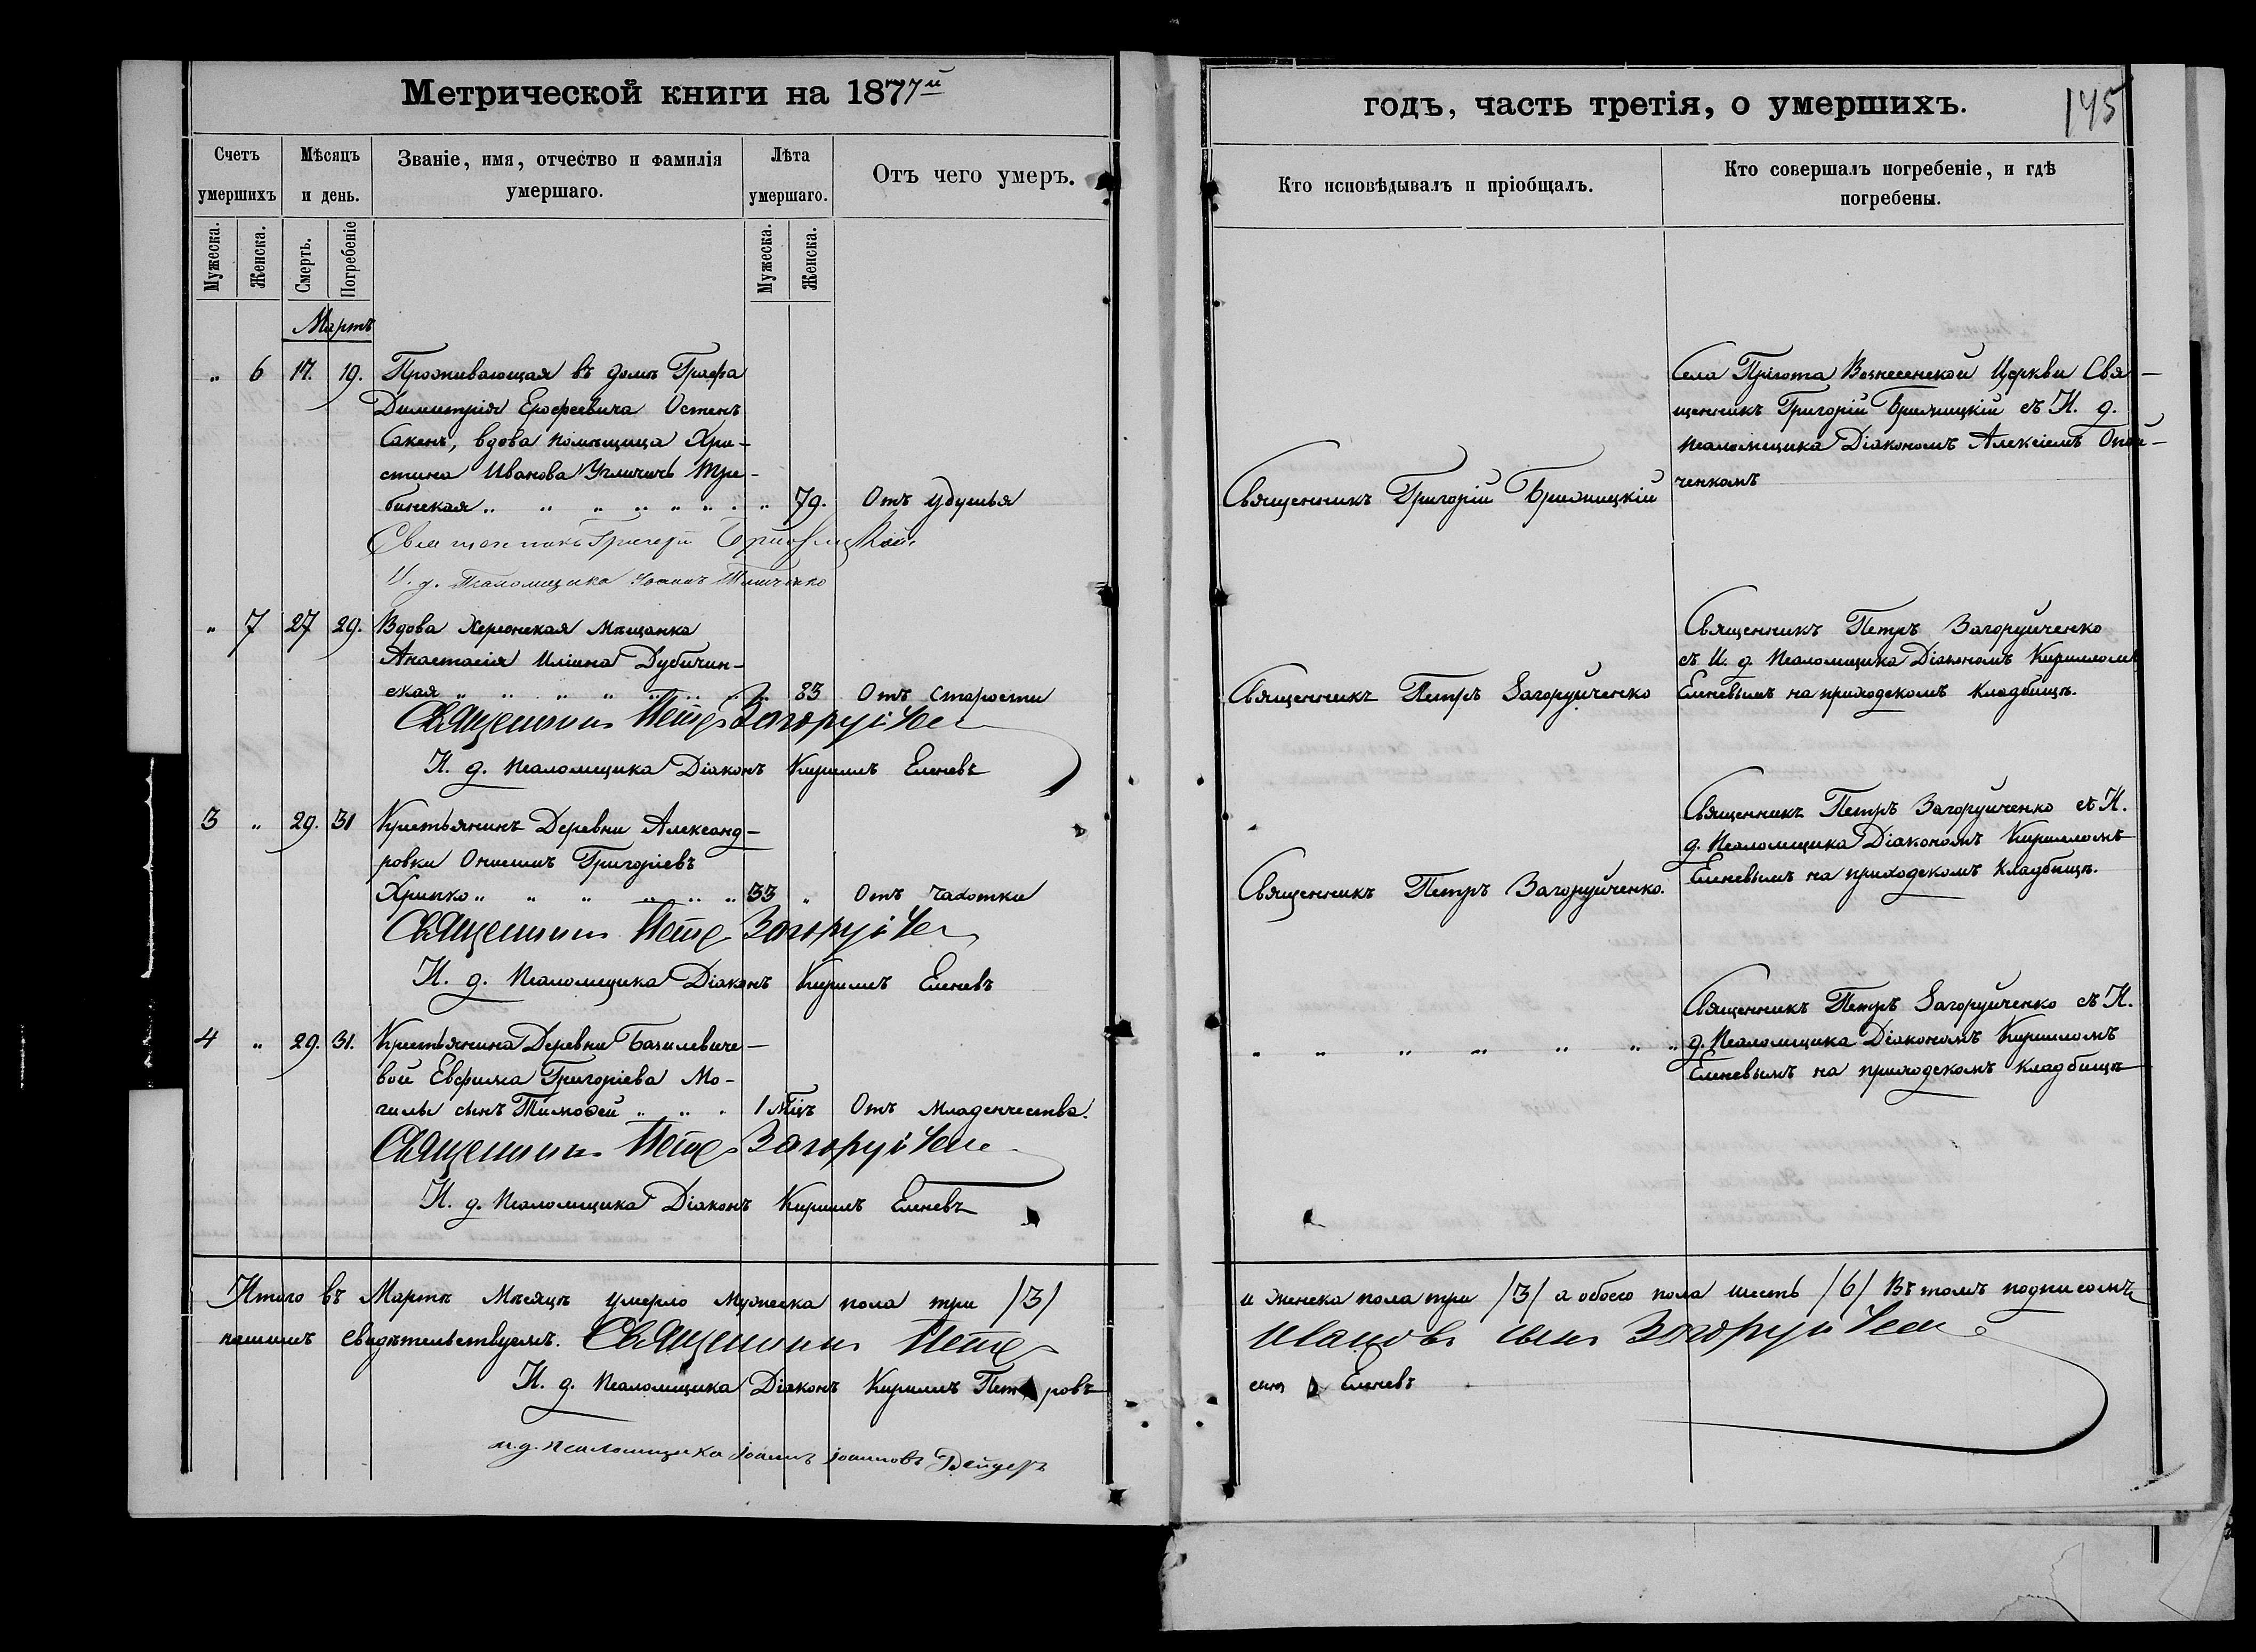 Метрической книги на 1877й
годъ, часть третія, о умершихъ.
145
Счетъ умершихъ
Мѣсяцъ и день.
Званіе, имя, отчество и фамилія умершаго.
Лѣта умершаго.
Отъ чего умеръ.
Кто исповѣдывалъ и пріобщалъ.
Кто совершалъ погребеніе, и гдѣ погребены.
Мужеска.
Женска.
Смерть.
Погребеніе
Мужеска.
Женска.
Мартъ
„ 6 17. 19. Проживающая въ домѣ Графа
Димитрія Ерофеевича Остенъ
Сакенъ, вдова помѣщица Хри-
стина Иванова Угличичъ Тре-
бинская „ „ „ „ „ „ „ 79. Отъ удушья
Священникъ Григорій
И. д. Псаломщика Іоаннъ
Священникъ Григорій
Села Пріюта Вознесенской Церкви Свя-
щенникъ Григорій съ И. д.
псаломщика Діакономъ Алексіемъ
ченкомъ
„ 7 27 29. Вдова Херсонская Мѣщанка
Анастасія Иліина Дубичин-
ская „ „ „ „ „ „ „ 83 Отъ Старости
Священникъ Петръ Загоруйченко
И. д. псаломщика Діаконъ Кириллъ Еленевъ
Священникъ Петръ Загоруйченко
Священникъ Петръ Загоруйченко
съ И. д. Псаломщика Діакономъ Кирилломъ
Еленевымъ на приходскомъ кладбищѣ.
3 „ 29. 31 Крестьянинъ Деревни Александ-
ровки Онисимъ Григоріевъ
Хрипко „ „ „ „ „ „ 33 „ Отъ чахотки
Священникъ Петръ Загоруйченко
И. д. Псаломщика Діаконъ Кириллъ Еленевъ
Священникъ Петръ Загоруйченко.
Священникъ Петръ Загоруйченко съ И.
д. Псаломщика Діакономъ Кирилломъ
Еленевымъ на приходскомъ кладбищѣ.
4 „ 29. 31. Крестьянина Деревни Базилевиче-
вой Евфима Григоріева Мо-
гилы сынъ Тимоѳей „ „ „ 1 мѣц Отъ младенчества.
Священникъ Петръ Загоруйченко
И. д. Псаломщика Діаконъ Кириллъ Еленевъ
„ „ „ „ „ „ „
Священникъ Петръ Загоруйченко съ И.
д. Псаломщика Діакономъ Кирилломъ
Еленевымъ на приходскомъ кладбищѣ
Итого въ Мартѣ Мѣсяцѣ умерло мужеска пола три /3/
и женска пола три /3/ а обоего пола шесть /6/ Въ томъ подписомъ
нашимъ свидѣтельствуемъ. Священникъ Петръ
Ивановъ сынъ Загоруйченко
И. д. Псаломщика Діаконъ Кириллъ Петровъ
сынъ Еленевъ
и. д. псаломщика Іоаннъ Іоанновъ